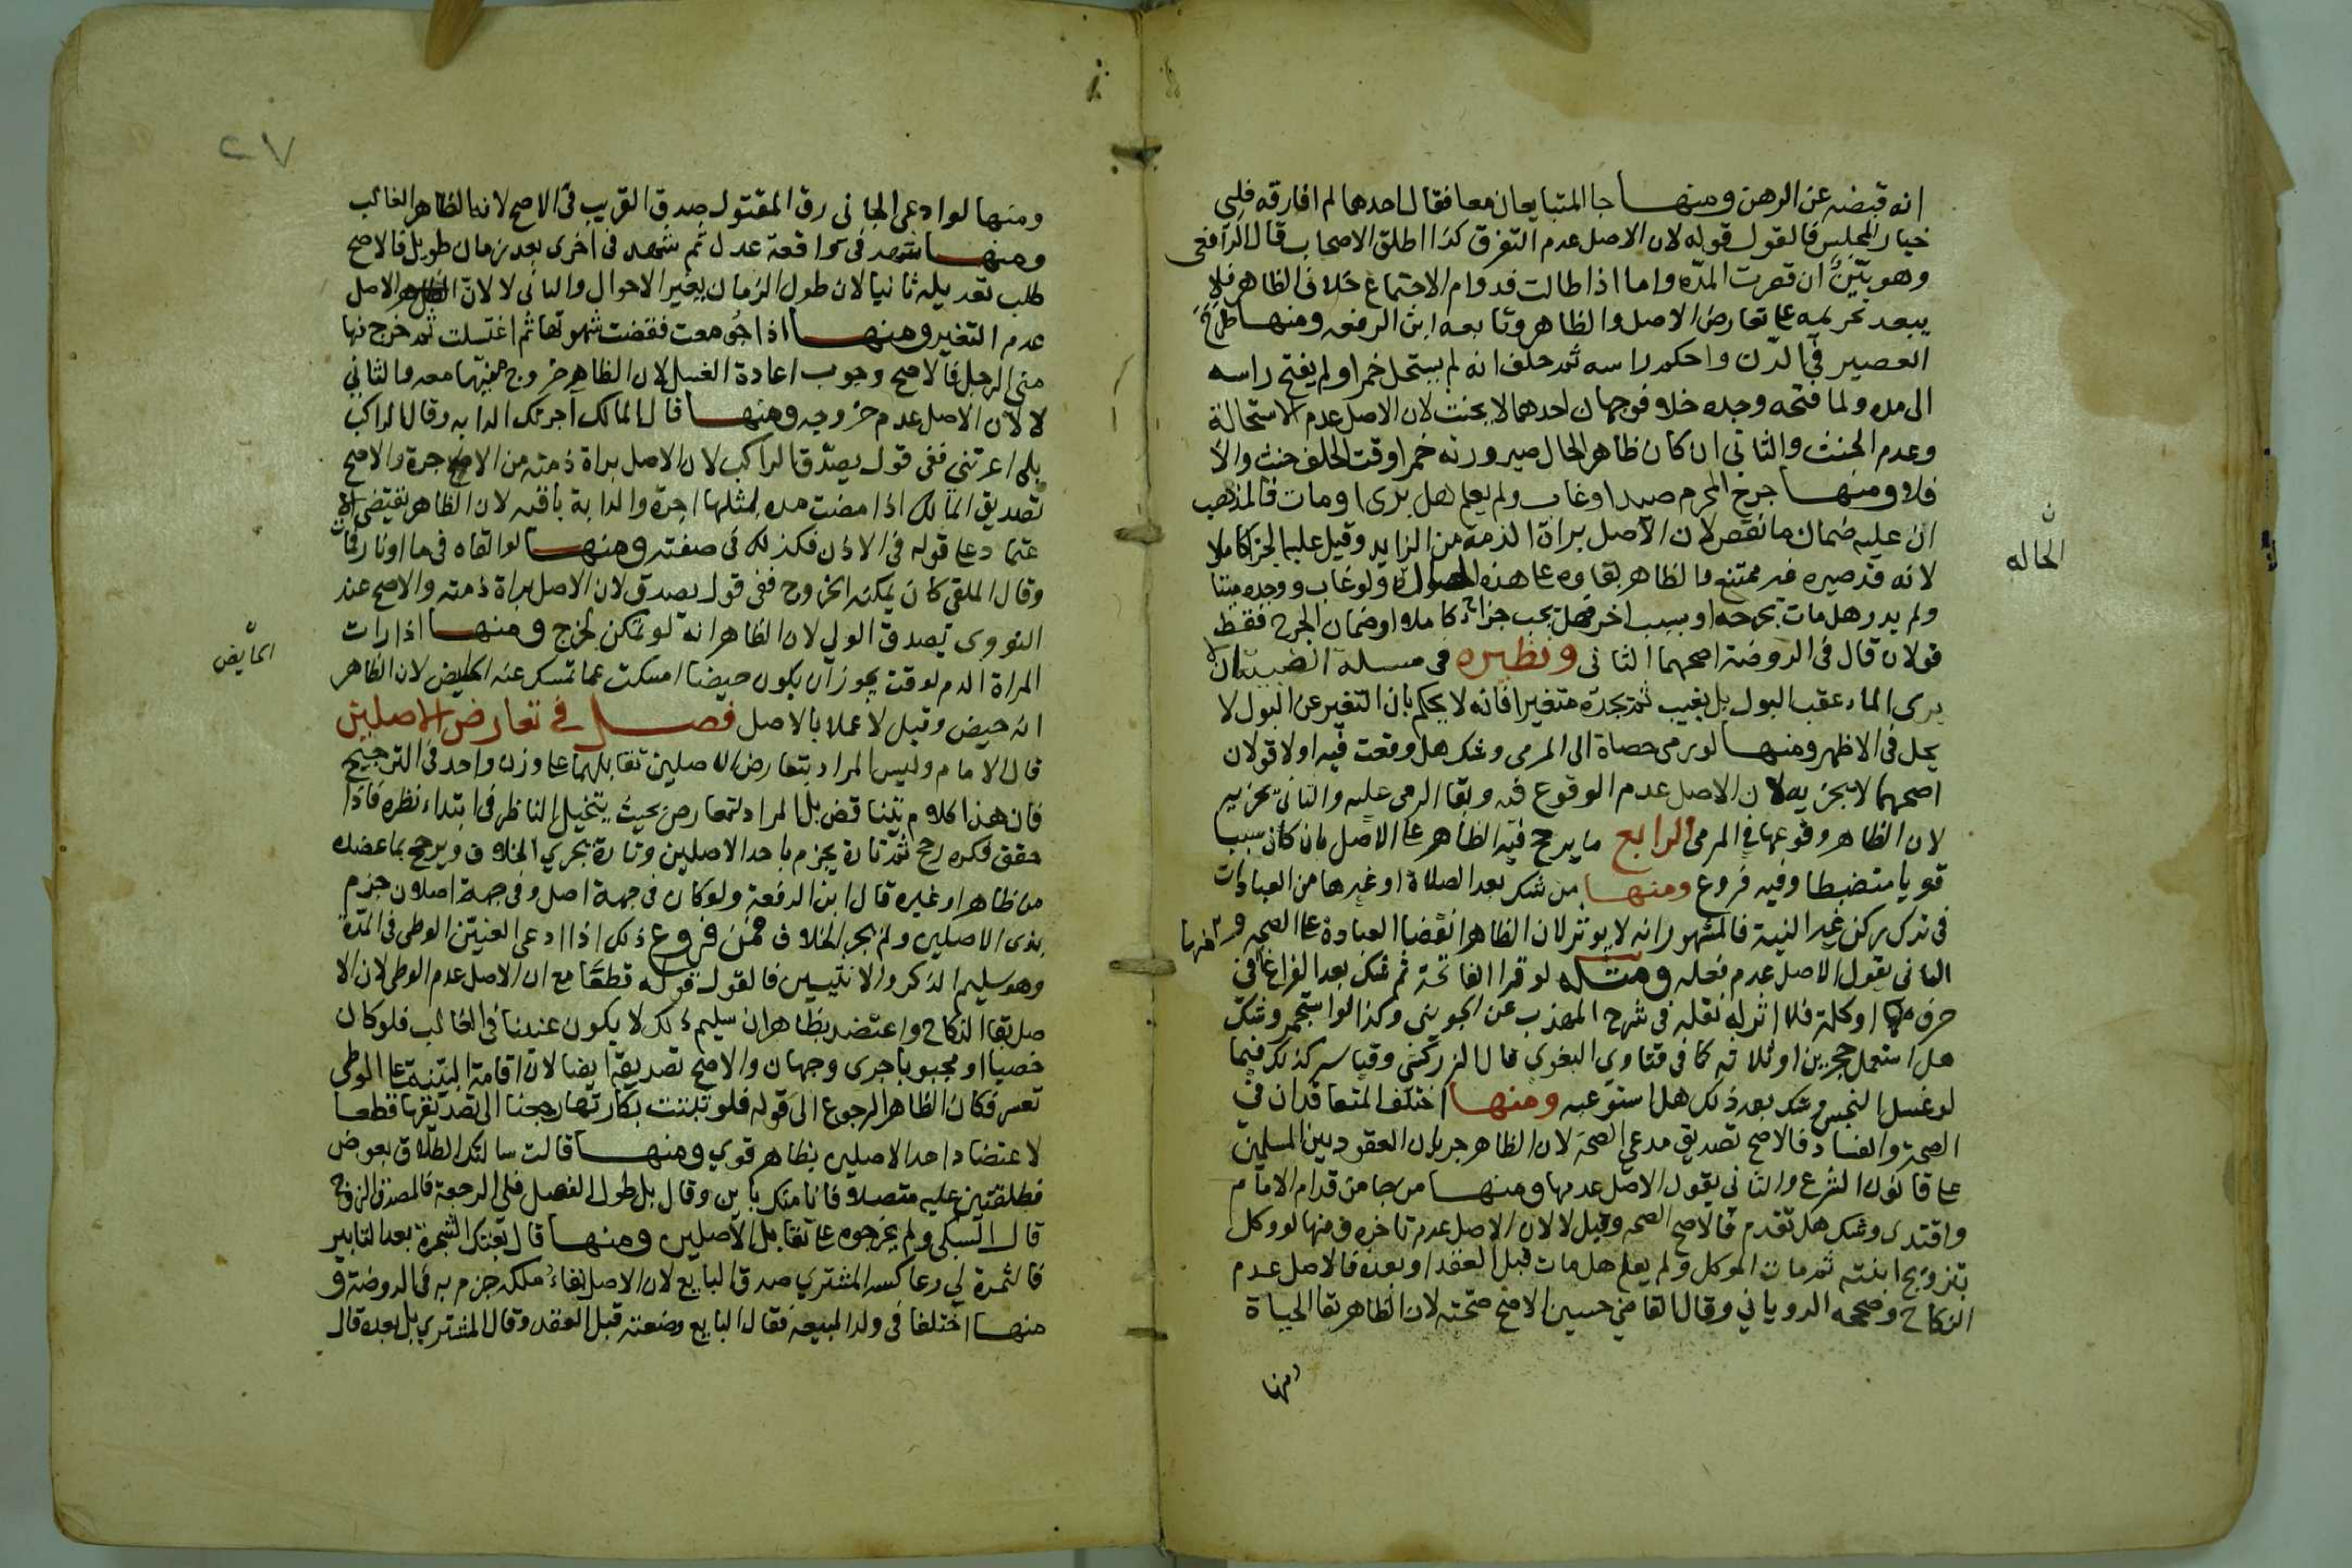 انه قبضه عن الرهن ومنها جا المتبايعان معا فقال احدهما لم افارقه فلي
خيار المجلس فالقول قوله لان الاصل عدم التفرق كذا اطلق الاصحاب قال الرافعي
وهو بيّن ان قصرت المدّه واما اذا طالت فدوام الاجتماع خلاف الظاهر فلا
يبعد تخريجه على تعارض الاصل والظاهر وتابعه ابن الرفعه ومنها طرح
العصير في الدّن واحكم راسه ثم حلف انه لم يستحل خمرا ولم يفتح راسه
الى مده ولما فتحه وجده خلا فوجهان احدهما لا يحنث لان الاصل عدم الاستحالة
وعدم الحنث والثاني ان كان ظاهر الحال صيرورته خمرا وقت الحلف حنث والا
فلا ومنها جرح المحرم صيدا وغاب ولم يعلم هل برى او مات فالمذهب
ان عليه ضمان ما نقص لان الاصل براة الذمة من الزايد وقيل عليه الجزا كاملا
لانه قد صيره غير ممتنع فالظاهر بقاوه على هذه ولو غاب ووجده ميتا
ن
الحاله
ولم يدر هل مات بجرحه او بسبب اخر فهل يجب جزاء كاملا او ضمان الجرح فقط
قولان قال في الروضة اصحهما الثاني ونظيره في مسلة الظبية ان لا
يرى الماء عقب البول بل يغيب ثم يجده متغيرا فانه لا يحكم بان التغير عن البول لا
يحل في الاظهر ومنها لو رمى حصاة الى المرمى وشك هل وقعت فيه اولا قولان
اصحهما لا يجزيه لان الاصل عدم الوقوع فيه وبقا الرمي عليه والثاني يجزيه
لان الظاهر وقوعها في المرمى الرابع ما يرجح فيه الظاهر على الاصل بان كان سببا
قويا منضبطا وفيه فروع ومنها من شك بعد الصلاة او غيرها من العبادات
في ترك ركن غير النية فالمشهور انه لا يوثر لان الظاهر انقضا العبادة على الصحه و
منها
الثاني يقول الاصل عدم فعله ومثله لو قرا الفاتحة ثم شك بعد الفراغ في
حرف او كلمة فلا اثر له نقله في شرح المهذب عن الجويني وكذا لو استجمر وشك
هل استعمل حجرين او ثلاثه كما في فتاوي البغوي قال الزركشي وقياسه كذلك فيما
لو غسل النجس وشك بعد ذلك هل استوعبه ومنها اختلف المتعاقدان في
الصحة والفساد فالاصح تصديق مدعي الصحة لان الظاهر جريان العقود بين المسلمين
على قانون الشرع والثاني يقول الاصل عدمها ومنها من جا من قدام الامام
واقتدى وشك هل تقدم فالاصح الصحه وقيل لا لان الاصل عدم تاخره ومنها لو وكل
بتزويج ابنته ثم مات الموكل ولم يعلم هل مات قبل العقد او بعده فالاصل عدم
النكاح وصححه الروياني وقال القاضي حسين الاصح صحته لان الظاهر بقا الحياة
ومنها
٢٧
ومنها لو ادعى الجاني رق المقتول صدق القريب في الاصح لانه الظاهر الغالب
ومنها شهد في واقعة عدل ثم شهد في اخرى بعد زمان طويل فالاصح
طلب تعديله ثانيا لان طول الزمان يغير الاحوال والثاني لا لان الاصل
عدم التغير ومنها اذا جُومعت فقضت شهوتها ثم اغتسلت ثم خرج منها
مني الرجل فالاصح وجوب اعادة الغسل لان الظاهر خروج منيّها معه والثاني
لا لان الاصل عدم خروجه ومنها قال المالك اجرتك الدابه وقال الراكب
بلى اعرتني ففي قول يصدّق الراكب لان الاصل براة ذمته من الاجرة والاصح
تصديق المالك اذا مضت مده لمثلها اجرة والدابة باقيه لان الظاهر يقتضي الا
عتماد على قوله في الاذن فكذلك في صفته ومنها لو القاه في ما او نار فمات
وقال الملقي كان يمكنه الخروج ففي قول يصدق لان الاصل براة ذمته والاصح عند
النووي تصدق الولي لان الظاهر انه لو تمكن لخرج ومنها اذا رات
المراة الدم لوقت يجوز ان يكون حيضا امسكت عما تمسك عنه الحايض لان الظاهر
الحايّض
انه حيض وقيل لا عملا بالاصل فصل في تعارض الاصلين
قال الامام وليس المراد بتعارض الاصلين تقابلهما على وزن واحد في الترجيح
فان هذا كلام يتناقض بل المراد التعارض بحيث يتخيل الناظر في ابتداء نظره فاذا
حقق فكره رجح ثم تارة يجزم باحد الاصلين وتارة يجري الخلاف ويرجح بما عضده
من ظاهر او غيره قال ابن الرفعة ولو كان في جهة اصل وفي جهة اصلان جزم
بذي الاصلين ولم يجر الخلاف فمن فروع ذلك اذا ادعى العنيّن الوطي في المدّة
وهو سليم الذكر والانثيين فالقول قوله قطعا مع ان الاصل عدم الوطي لان الا
صل بقا النكاح واعتضد بظاهر ان سليم ذلك لا يكون عنينا في الغالب فلو كان
خصيا او مجبوبا جرى وجهان والاصح تصديقه ايضا لان اقامة البيّنة على الوطي
تعسر فكان الظاهر الرجوع الى قوله فلو ثبتت بكارتها رجعنا الى تصديقها قطعا
لاعتضاد احد الاصلين بظاهر قوي ومنها قالت سالتك الطلاق بعوض
فطلقتني عليه متصلا فانا منك باين وقال بل طول الفصل فلي الرجعة فالمصدق الزوج
قال السبكي ولم يخرجوه على تقابل الاصلين ومنها قال بعتك الشجرة بعد التابير
فالثمرة لي وعاكسه المشتري صدق البايع لان الاصل بقاء ملكه جزم به في الروضة و
منها اختلفا في ولد المبيعه فقال البايع وضعته قبل العقد وقال المشتري بل بعده قال